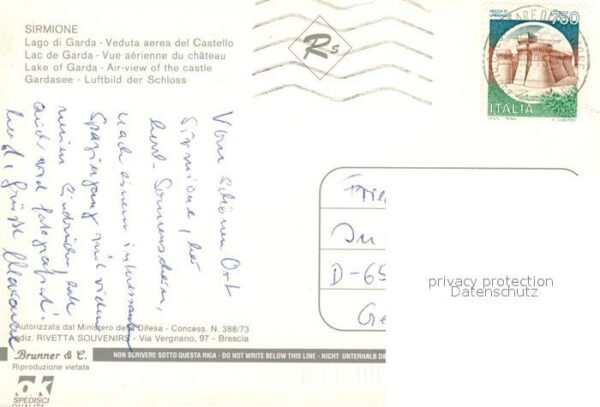 SIRMIONE
Lago di Garda - Veduta aerea del Castello
Lac de Garda - Vue aérienne du château
Lake of Garda - Air-view of the castle
Gardasee - Luftbild der Schloss
Rs
ROCCA DI
URBISAGLIA
750
ITALIA
Vom schönen Ort
Sirmione, bei
Sonnenschein,
nach einem interessanten
Spaziergang mit vielen
Eindrücken,
auch viel fotografiert.
Grüße
D-65
privacy protection
Datenschutz
Autorizzata dal Ministero della Difesa - Concess. N. 388/73
ediz. RIVETTA SOUVENIRS - Via Vergnano, 97 - Brescia
Brunner & C.
NON SCRIVERE SOTTO QUESTA RIGA - DO NOT WRITE BELOW THIS LINE - NICHT UNTERHALB
Riproduzione vietata
ok
SPEDISCI
QUALITÀ